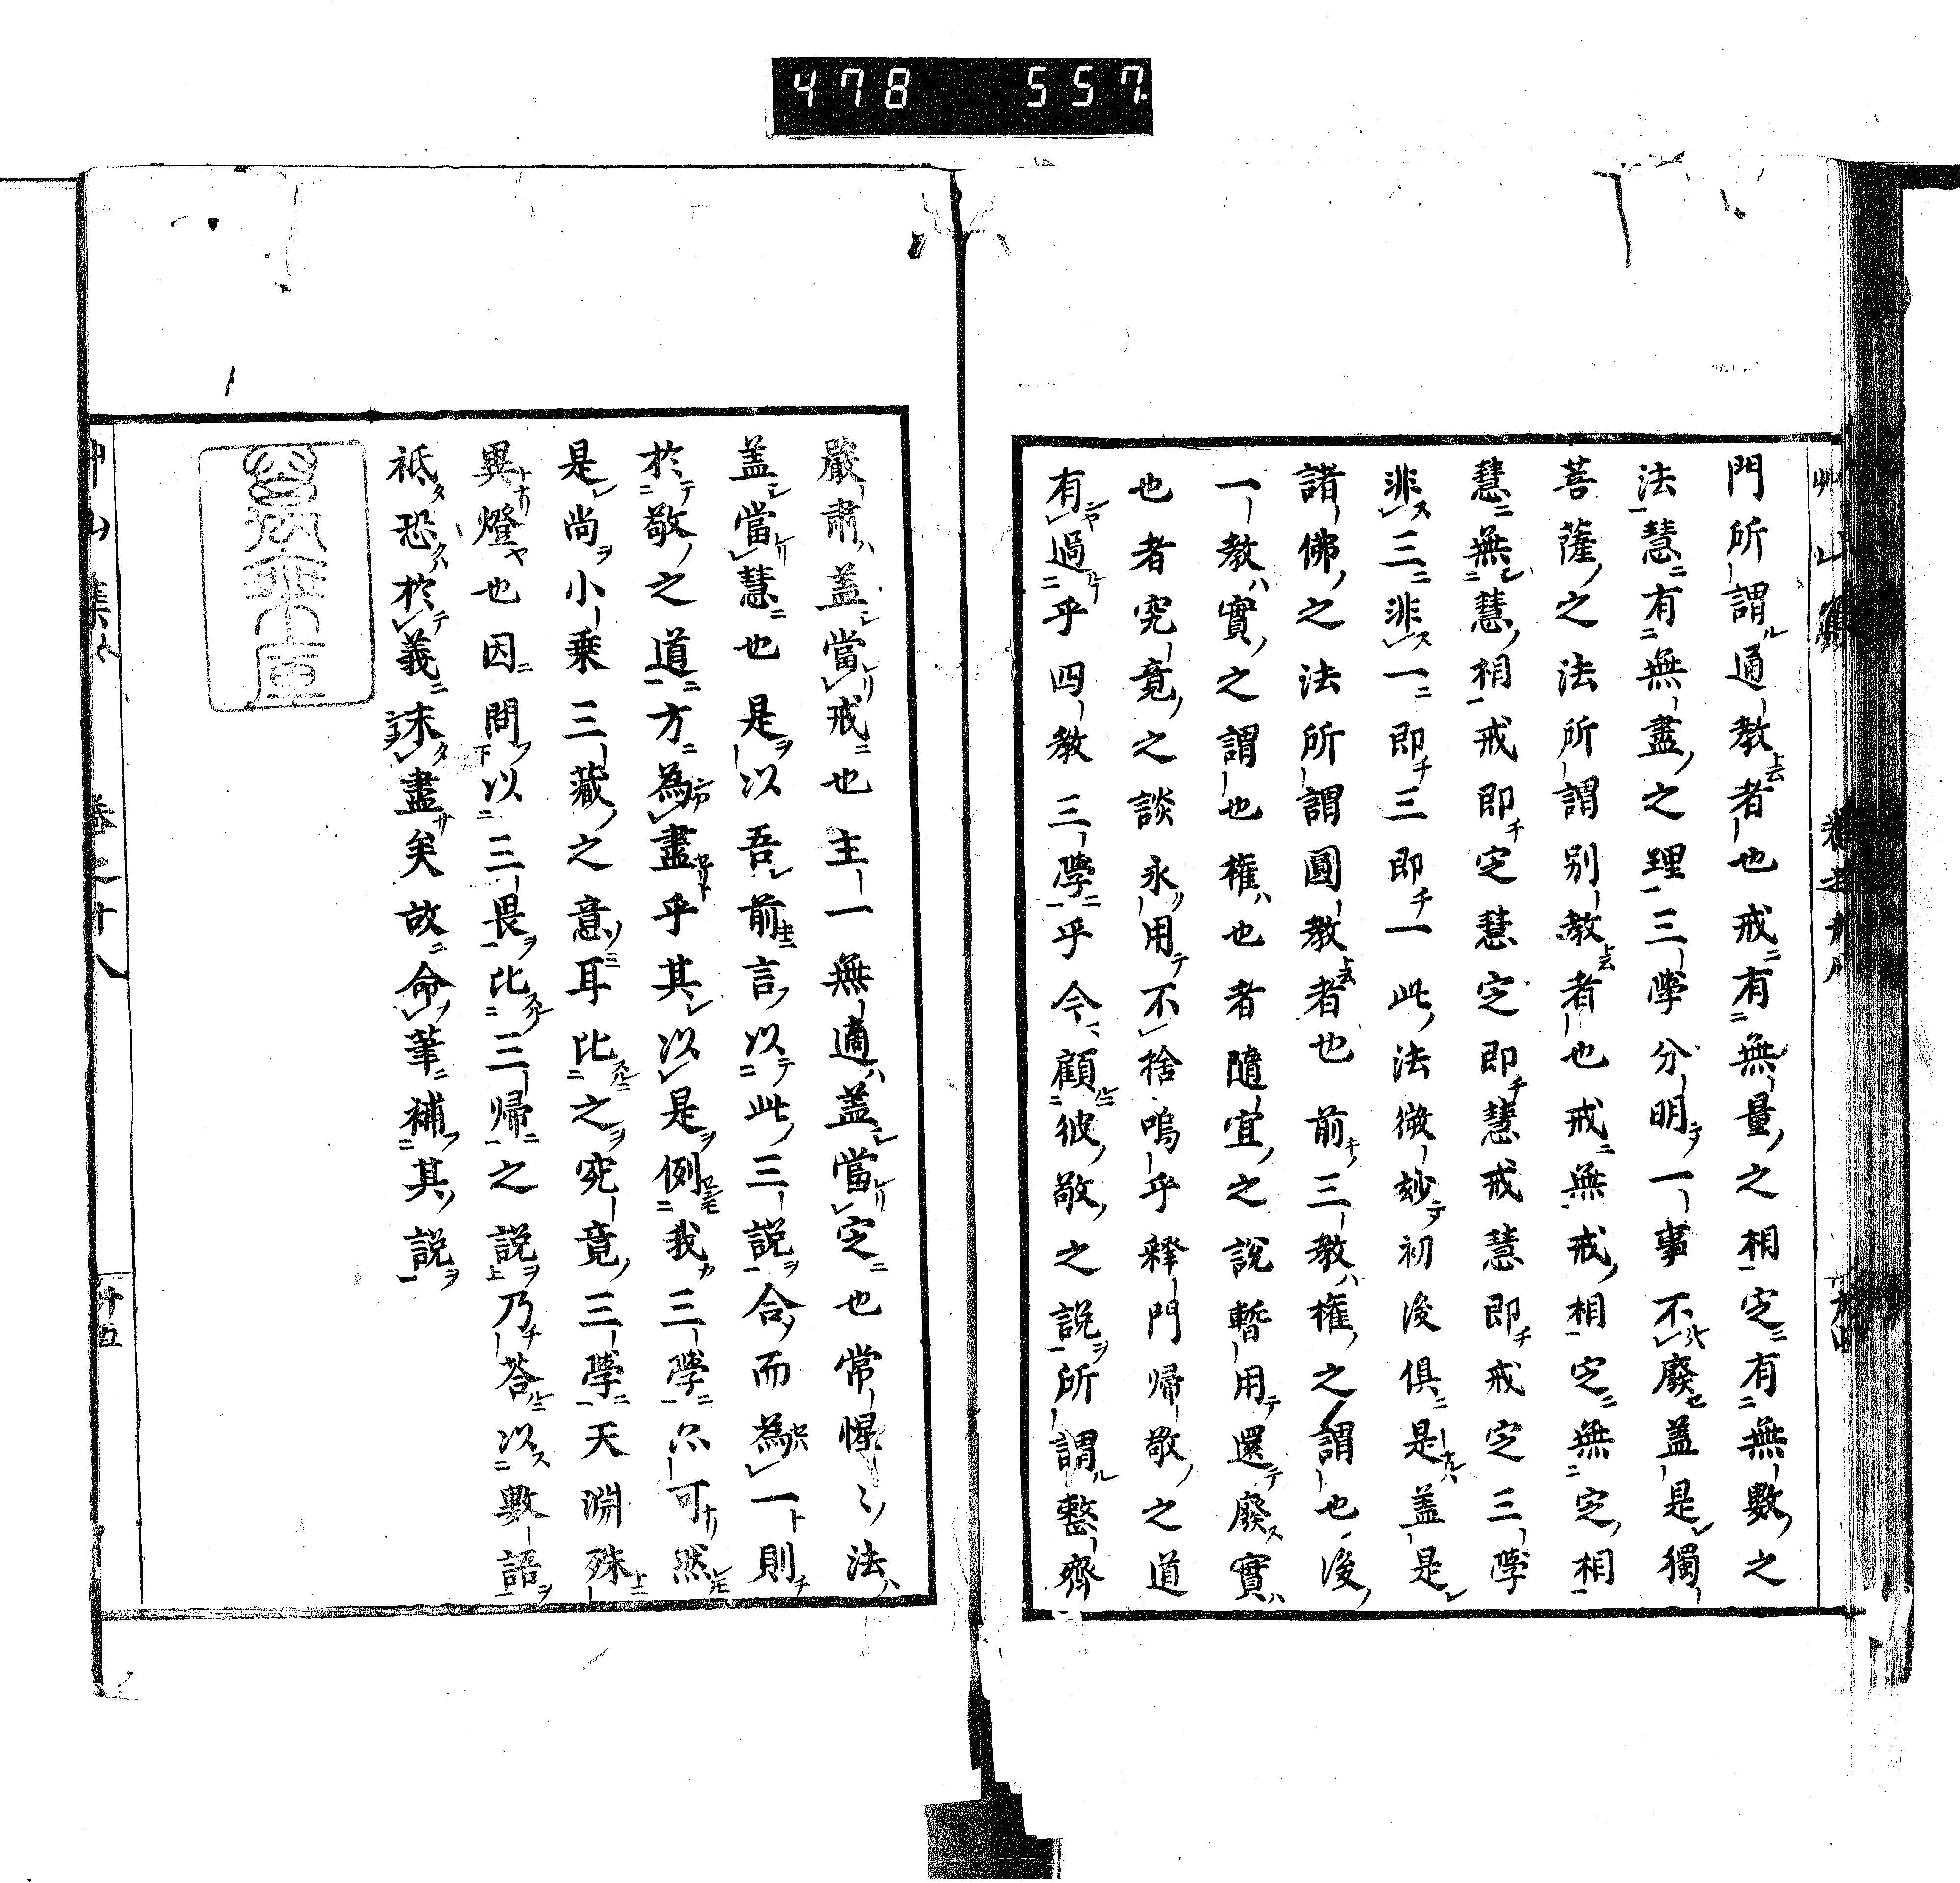 478 557
門所謂通教者也戒有無量之相定有無數之
法慧有無盡之理三學分明一事不廢盖是獨
菩薩之法所謂别教者也戒無戒相定無定相
慧無慧相戒即定慧定即慧戒慧即戒定三學
非三非一即三即一此法微妙初後俱是盖是
諸佛之法所謂圓教者也前三教權之謂也後
一教實之謂也權也者隨宜之說暫用還廢實
也者究竟之談永用不捨嗚乎釋門帰敬之道
有過乎四教三學乎今顧彼敬之説所謂整齊
嚴肅盖當戒也主一無適盖當定也常惺〻法
盖當慧也是以吾前言以此三説合而為一則
於敬之道方為盡乎其以是例我三學尒可然
是尚小乗三藏之意耳比之究竟三學天淵殊
異燈也因問以三畏比三帰之説乃荅以數語
祗恐於義未盡矣故命筆補其説
艸山集 卷之十八 廿五